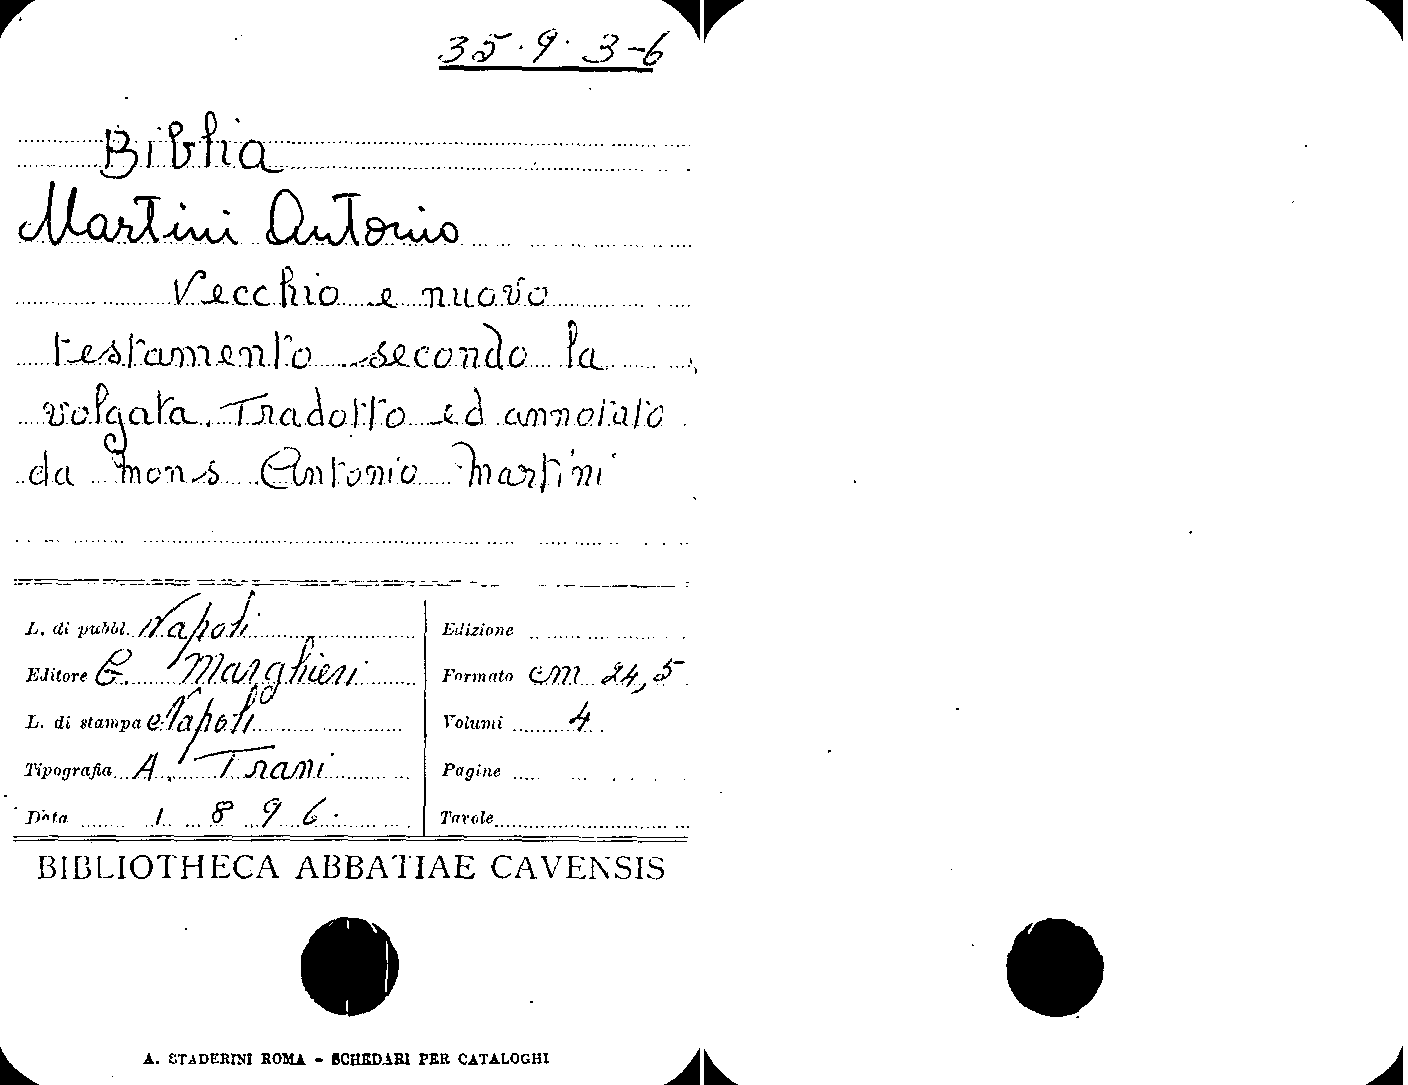 35.9.3-6
Biblia
Martini Antonio
Vecchio e nuovo
testamento secondo la
volgata. Tradotto ed annotato
da mons Antonio Martini
L. di pubbl. Napoli
Editore G. Marghieri
L. di stampa Napoli
Tipografia A. Trani
Data 1896.
Edizione
Formato cm 24,5
Volumi 4
Pagine
Tavole
BIBLIOTHECA ABBATIAE CAVENSIS
A. STADERINI ROMA - SCHEDARI PER CATALOGHI